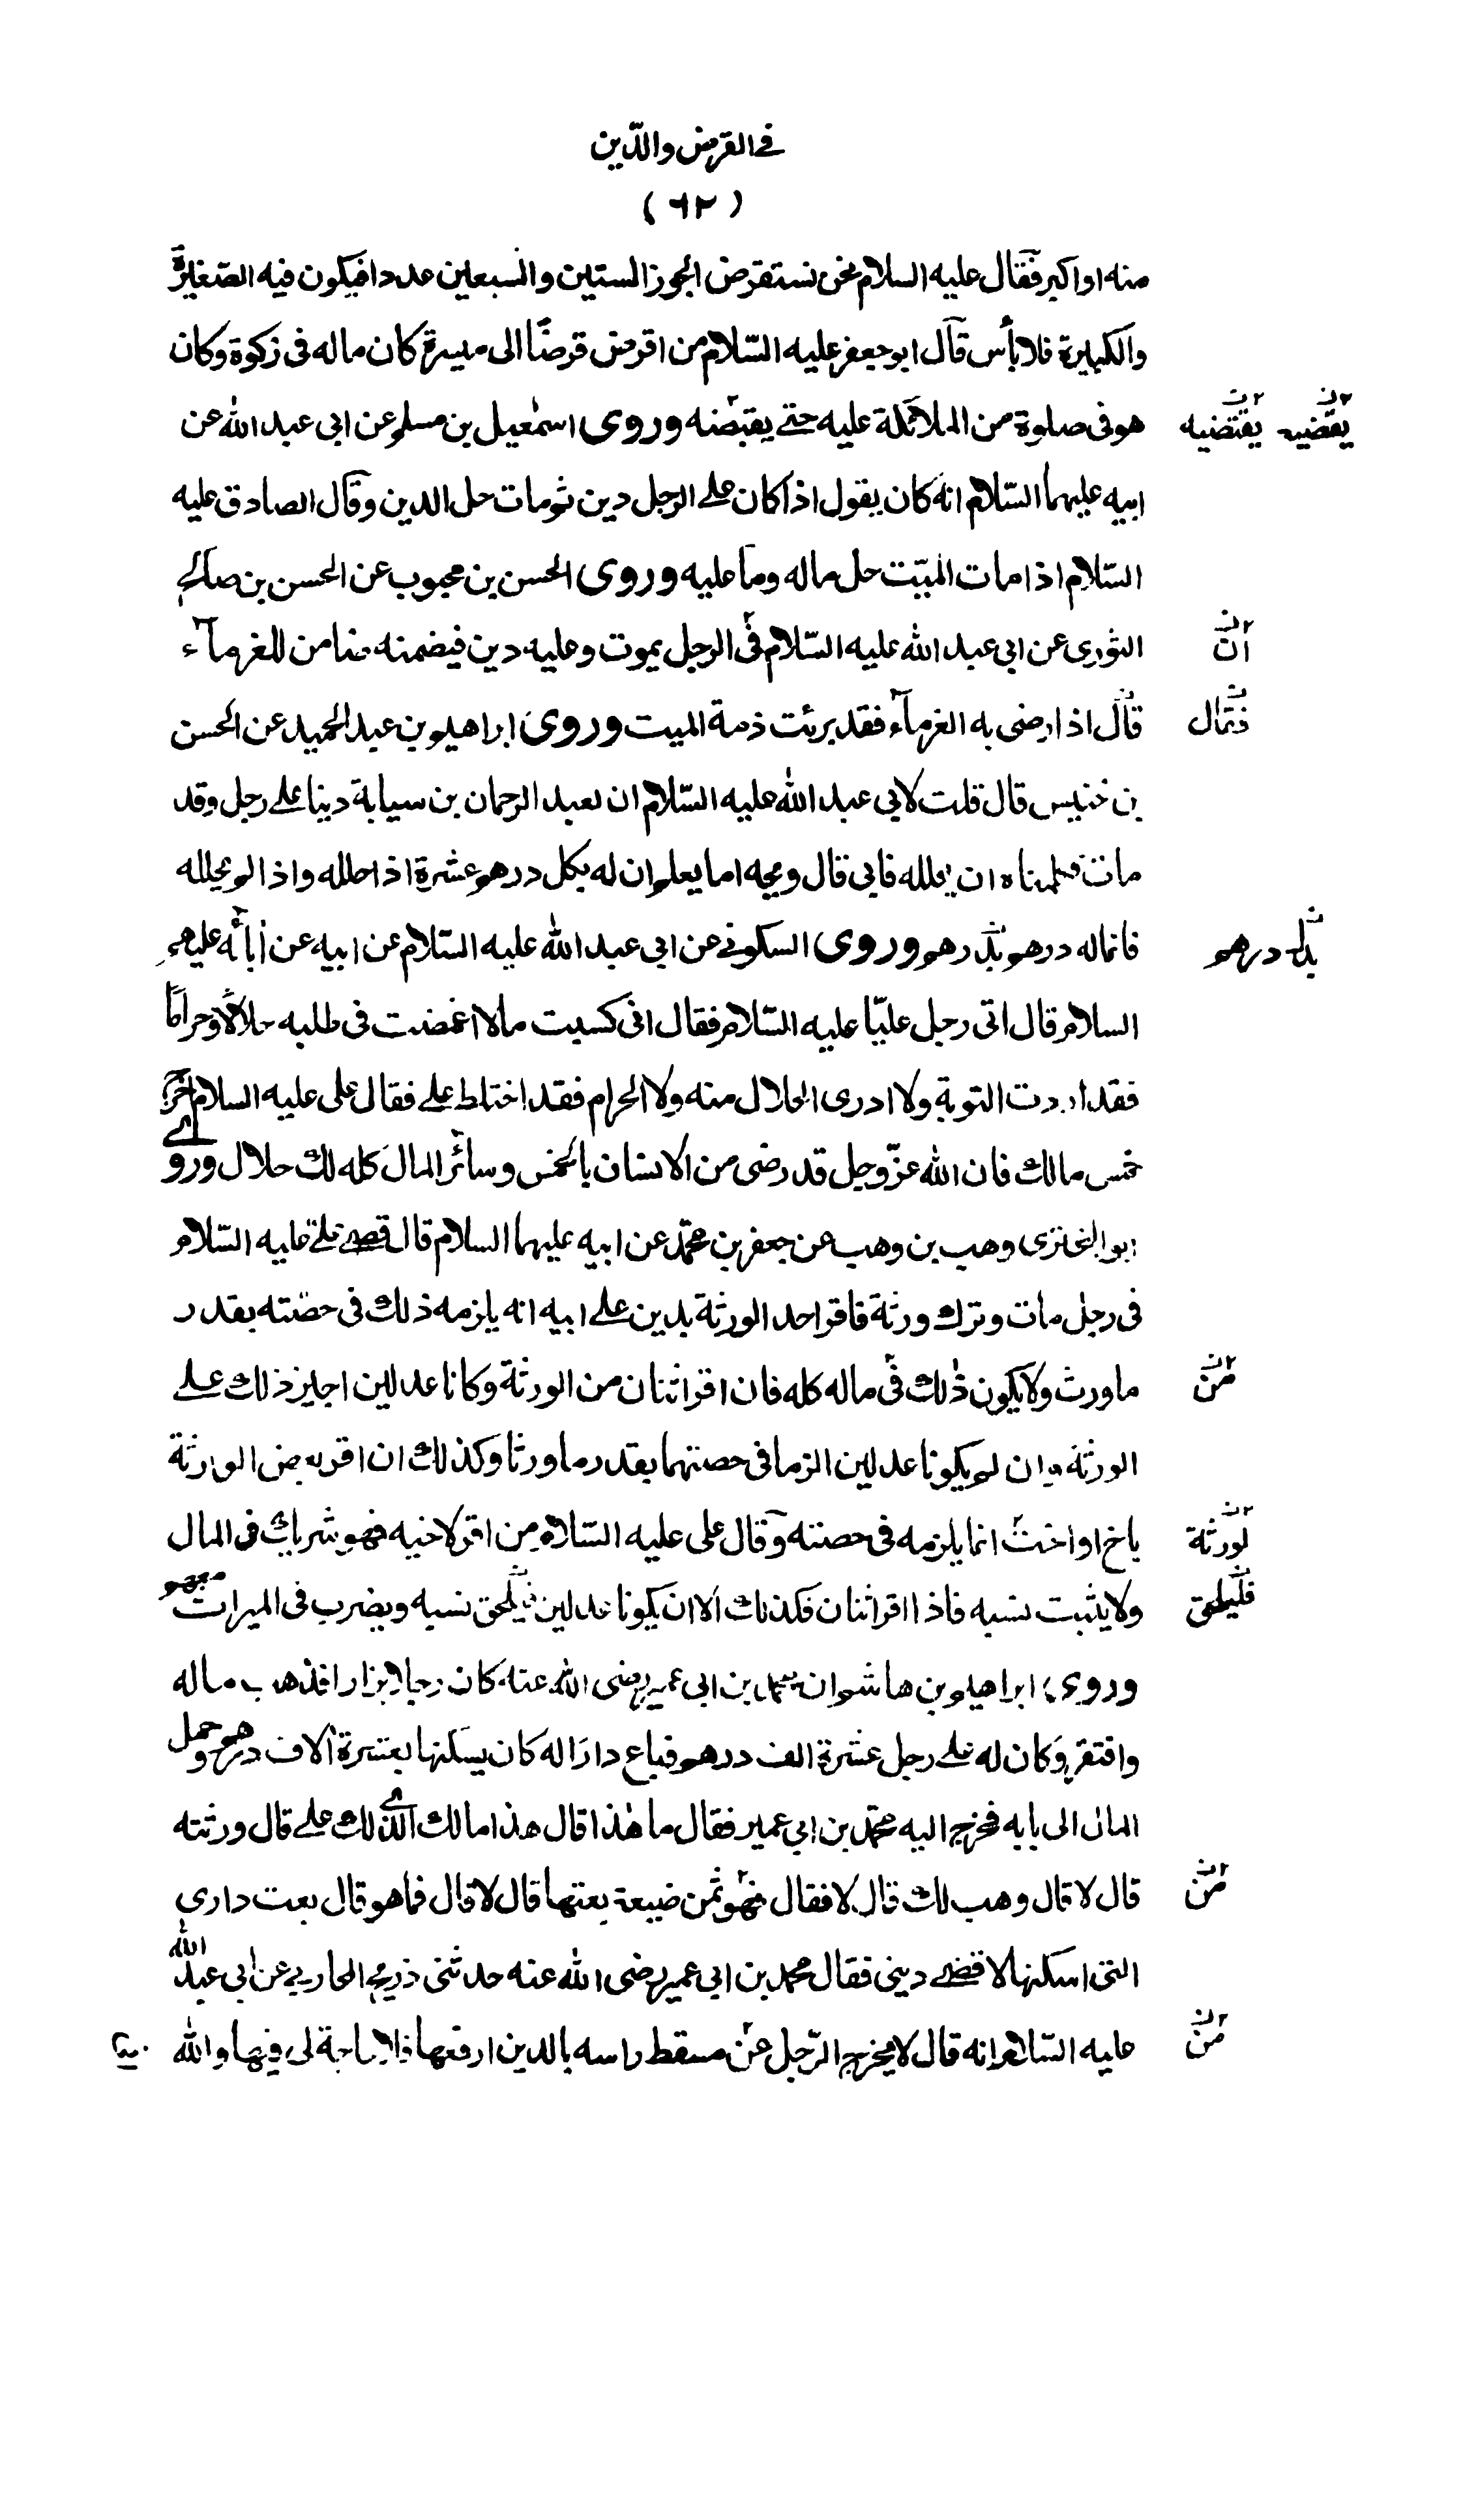 في القرض والدّين
(٦٢)
منه او اكبر فقال عليه السلام نحن نستقرض الجوز الستين والسبعين عددا فيكون فيه الصّغيرة
والكبيرة فلا بأس قال ابو جعفر عليه السّلام من اقرض قرضًا الى ميسرة كان ماله في زكوة وكان
هو في صلوة من الملائكة عليه حتى يقبضه وروى اسمٰعيل بن مسلم عن ابي عبد الله عن
يقتضيه يقضيه
ابيه عليهما السّلام انه كان يقول اذا كان على الرجل دين ثم مات حل الدين وقال الصادق عليه
السّلام اذا مات الميّت حل ماله وما عليه وروى الحسن بن محبوب عن الحسن بن صالح
الثوري عن ابي عبد الله عليه السّلام في الرجل يموت وعليه دين فيضمنه ضامن للغرماء
ان
قال اذا رضى به الغرماء فقد برئت ذمة الميت وروى ابراهيم بن عبد الحميد عن الحسن
فقال
بن خنيس قال قلت لابي عبد الله عليه السّلام ان لعبد الرحمان بن سيابة دينا على رجل وقد
مات فكلمناه ان يحلله فابى قال ويحه اما يعلم ان له بكل درهم عشرة اذا حلله واذا لم يحلله
فانما له درهم بدرهم وروى السكوني عن ابي عبد الله عليه السّلام عن ابيه عن اٰبائه عليهم
بدل درهم
السلام قال اتى رجل عليّا عليه السّلام فقال اني كسبت مالا اغمضت في طلبه حلالا وحراما
فقد اردت التوبة ولا ادري الحلال منه ولا الحرام فقد اختلط علي فقال علي عليه السلام اخرج
خمس مالك فان الله عزّ وجل قد رضى من الانسان بالخمس وسائر المال كله لك حلال وروى
ابو البختري وهب بن وهب عن جعفر بن محمّد عن ابيه عليهما السلام قال قضى علي عليه السّلام
في رجل مات وترك ورثة فاقر احد الورثة بدين على ابيه انه يلزمه ذلك في حصّته بقدر
ما ورث ولا يكون ذٰلك في ماله كله فان اقر اثنان من الورثة وكانا عدلين اجيز ذلك على
من
الورثة وان لم يكونا عدلين الزما في حصتهما بقدر ما ورثا وكذلك ان اقر بعض الورثة
باخ او اخت انما يلزمه في حصته وقال علي عليه السّلام من اقر لاخيه فهو شريك في المال
لورثة
ولا يثبت نسبه فاذا اقر اثنان فكذلك الا ان يكونا عدلين فيلحق نسبه ويضرب في الميراث معهم
فليلحق
وروى ابراهيم بن هاشم ان محمد بن ابي عمير رضى الله عنه كان رجلا بزازا فذهب ماله
وافتقر وكان له على رجل عشرة الف درهم فباع دارًا له كان يسكنها بعشرة اٰلاف درهم وحمل
المال الى بابه فخرج اليه محمّد بن ابي عمير فقال ما هٰذا قال هذا مالك الذي لك علي قال ورثته
قال لا قال وهب لك قال لا فقال فهو ثمن ضيعة بعتها قال لا قال فما هو قال بعت داري
من
التي اسكنها لاقضى ديني فقال محمد بن ابي عمير رضى الله عنه حدثني ذريح المحاربي عن ابي عبد الله
عليه السّلام انه قال لا يخرج الرّجل عن مسقط راسه بالدين ارفعها فلا حاجة لي فيها والله
من